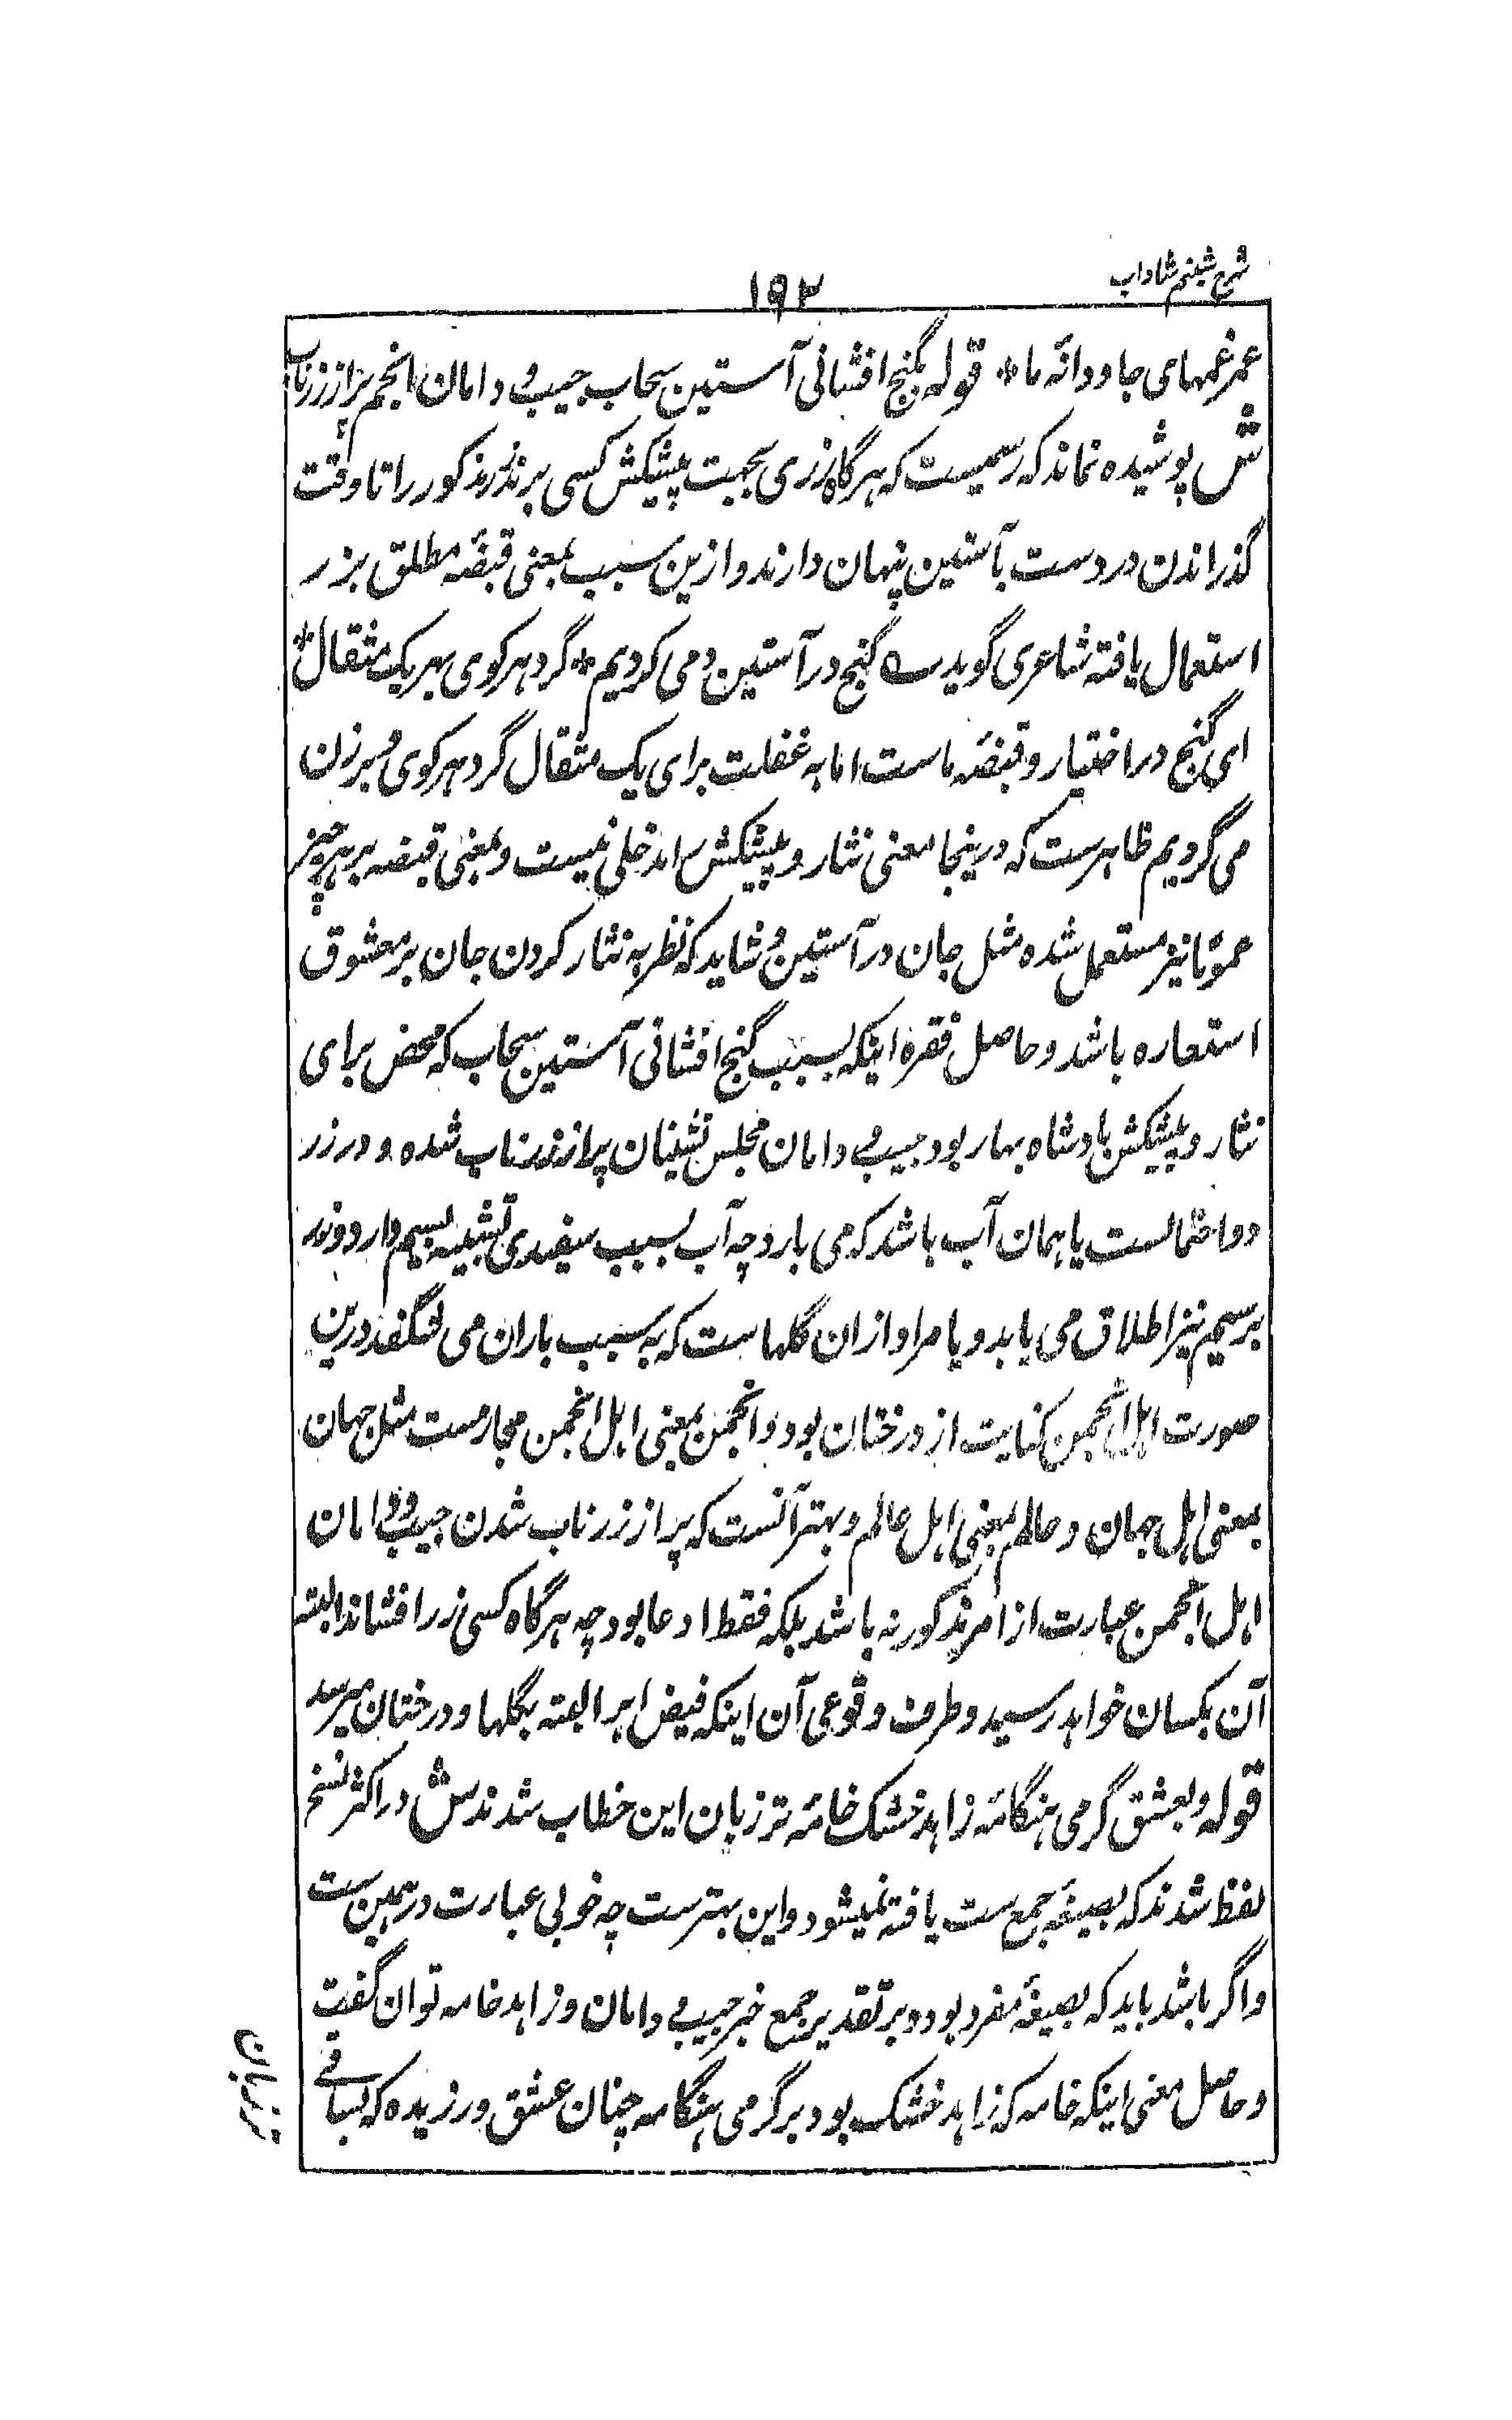 شرح شبنم شاداب
۱۹۲
عمر غمهای جاودانهٔ ما * قوله بگنج افشانی آستین سحاب جیب و دامان انجمن پر از زر ناب
ش پوشیده نماند که رسمیست که هرگاه زری بجهت پیشکش کسی برند زر مذکور را تا وقت
گذراندن در دست بآستین پنهان دارند و ازین سبب بمعنی قبضهٔ مطلق بزر
استعمال یافته شاعری گوید ؎ گنج در آستین و می گردیم * گرد هر کوی بهر یک مثقال *
ای گنج در اختیار و قبضهٔ ماست اما به غفلت برای یک مثقال گرد هر کوی و برزن
می گردیم ظاهرست که درینجا معنی نثار و پیشکش را دخلی نیست و بمعنی قبضه بر هر چیز
عموما نیز مستعمل شده مثل جان در آستین و شاید که نظر به نثار کردن جان بر معشوق
استعاره باشد و حاصل فقره اینکه بسبب گنج افشانی آستین سحاب که محض برای
نثار و پیشکش بادشاه بهار بود جیب و دامان مجلس نشینان پر از زر ناب شده و در زر
دو احتمالست یا همان آب باشد که می بارد چه آب بسبب سفیدی تشبیه بسیم دارد و زر
بر سیم نیز اطلاق می یابد و یا مراد از ان گلهاست که به سبب باران می شگفد درین
صورت اهل انجمن کنایت از درختان بود و انجمن بمعنی اهل انجمن مجازست مثل جهان
بمعنی اهل جهان و عالم بمعنی اهل عالم و بهتر آنست که پر از زر ناب شدن جیب و دامان
اهل انجمن عبارت از امر مذکور نه باشد بلکه فقط ادعا بود چه هرگاه کسی زر افشاند البته
آن بکسان خواهد رسید و طرف وقوعی آن اینکه فیض ابر البته بگلها و درختان میرسد
قوله و بعشق گرمی هنگامه زاهد خشک خامه تر زبان این خطاب شدند ش در اکثر نسخ
لفظ شدند که بصیغهٔ جمع ست یافته نمیشود و این بهترست چه خوبی عبارت در همین ست
و اگر باشد باید که بصیغهٔ مفرد بود و بر تقدیر جمع خبر جیب و دامان و زاهد خامه توان گفت
و حاصل معنی اینکه خامه که زاهد خشک بود بر گرمی هنگامه چنان عشق ورزیده که بساقی